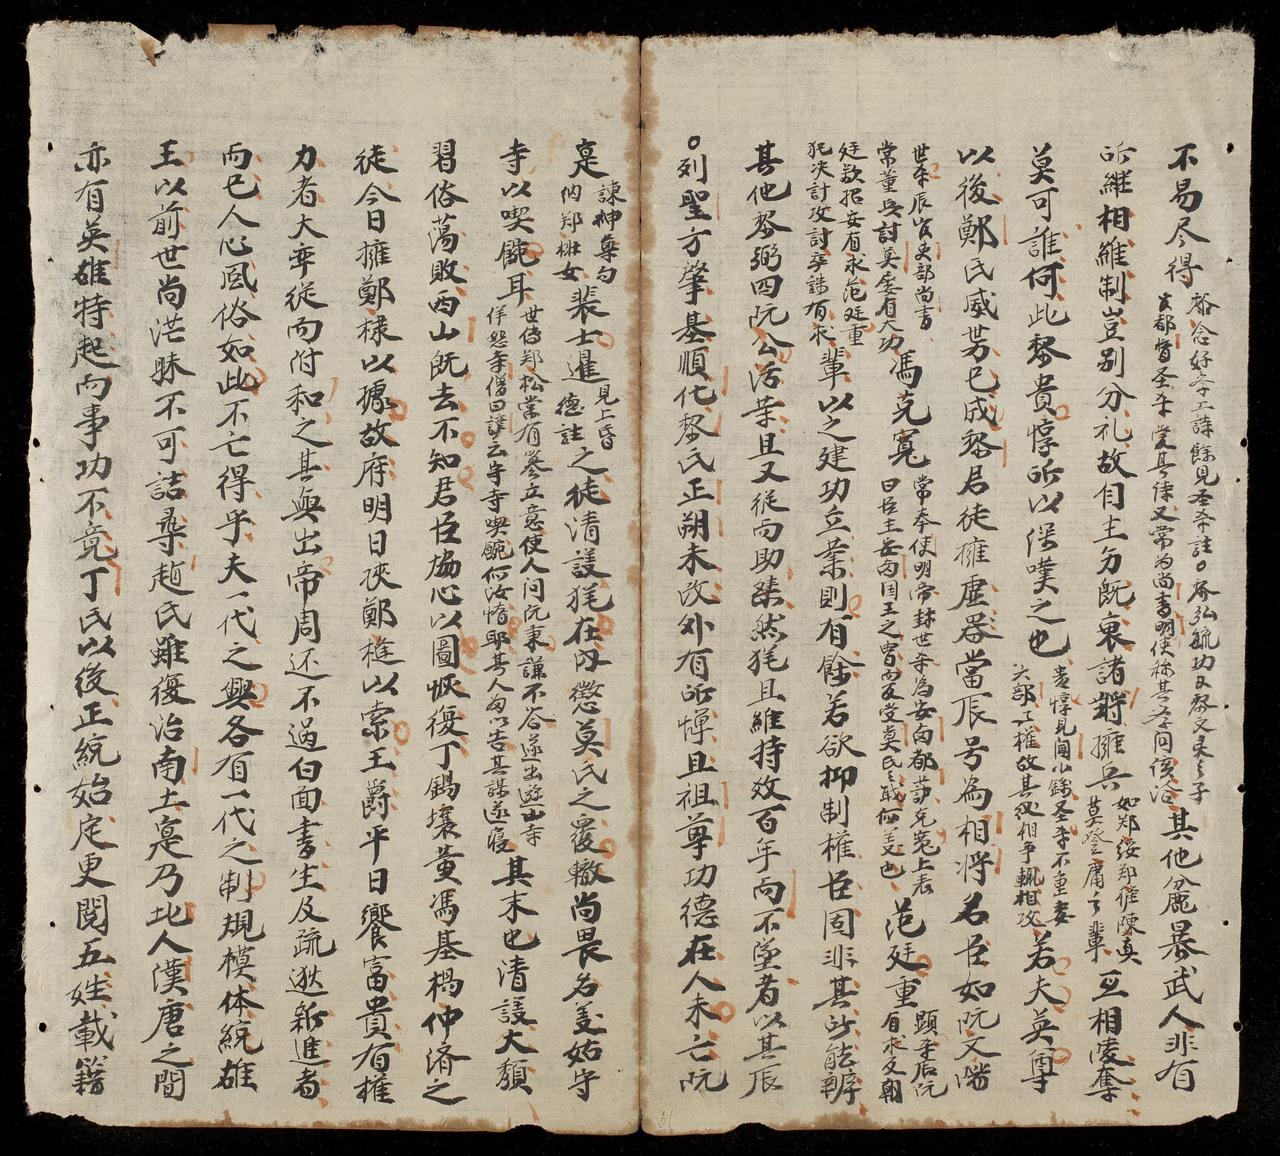 不易尽得黎念好李工詩餘見圣宗註○黎弘毓功臣黎文灵之子其他麁暴武人非有
所継相維制豈别分礼故自主勢既衰諸將擁兵如郑綏郑惟陳真莫登庸之輩互相陵奪
莫可誰何此黎貴惇所以深嘆之也貴惇見聞小錄圣宗不重妻六部之權故其後相爭輒相攻若夫英尊
以後鄭氏威势已成黎君徒擁虚器當辰号為相將名臣如阮文階
世宗辰官吏部尚書常董兵討莫屡有大功馮克寬常奉使明帝封世宗為安南都克寬上表曰臣主安南国王之冑而受莫氏之職何義也范廷重顕宗辰阮有求文朝
廷欵招安有求范廷重犯决計攻討卒誅有求輩以之建功立業則有餘若欲抑制權臣固非其所能辨
其他黎弼四阮公沆某且又從而助桀然猶且維持效百年而不墜者以其辰
○列聖方肇基順化黎氏正朔未改外有所憚且祖尊功德在人未亡阮
寔諫神尊勿納郑椒女裴士暹見上昏德註之徒清議猶在内懲莫氏之覆轍尚畏名義姑守
寺以喫餽耳世傳郑松常有簒立意使人问阮秉謙不答遂出遊山寺佯怒寺僧曰諺云守寺喫餽何汝惰耶其人匆以告其謀遂寢其末也清議大頽
習俗蕩敗西山既去不知君臣協心以圖恢復丁錫壤黄馮基楊仲济之
徒今日擁鄭棣以擾故府明日挾鄭槰以索王爵平日饗富貴有權
力者大率從而附和之其與出帝周还不過白面書生及疏逖新進者
而已人心風俗如此不亡得乎夫一代之興各有一代之制規模体統雄
王以前世尚茫昧不可詰尋趙氏雖復治南土寔乃北人漢唐之間
亦有英雄特起而事功不竟丁氏以後正統始定更閲五姓載籍